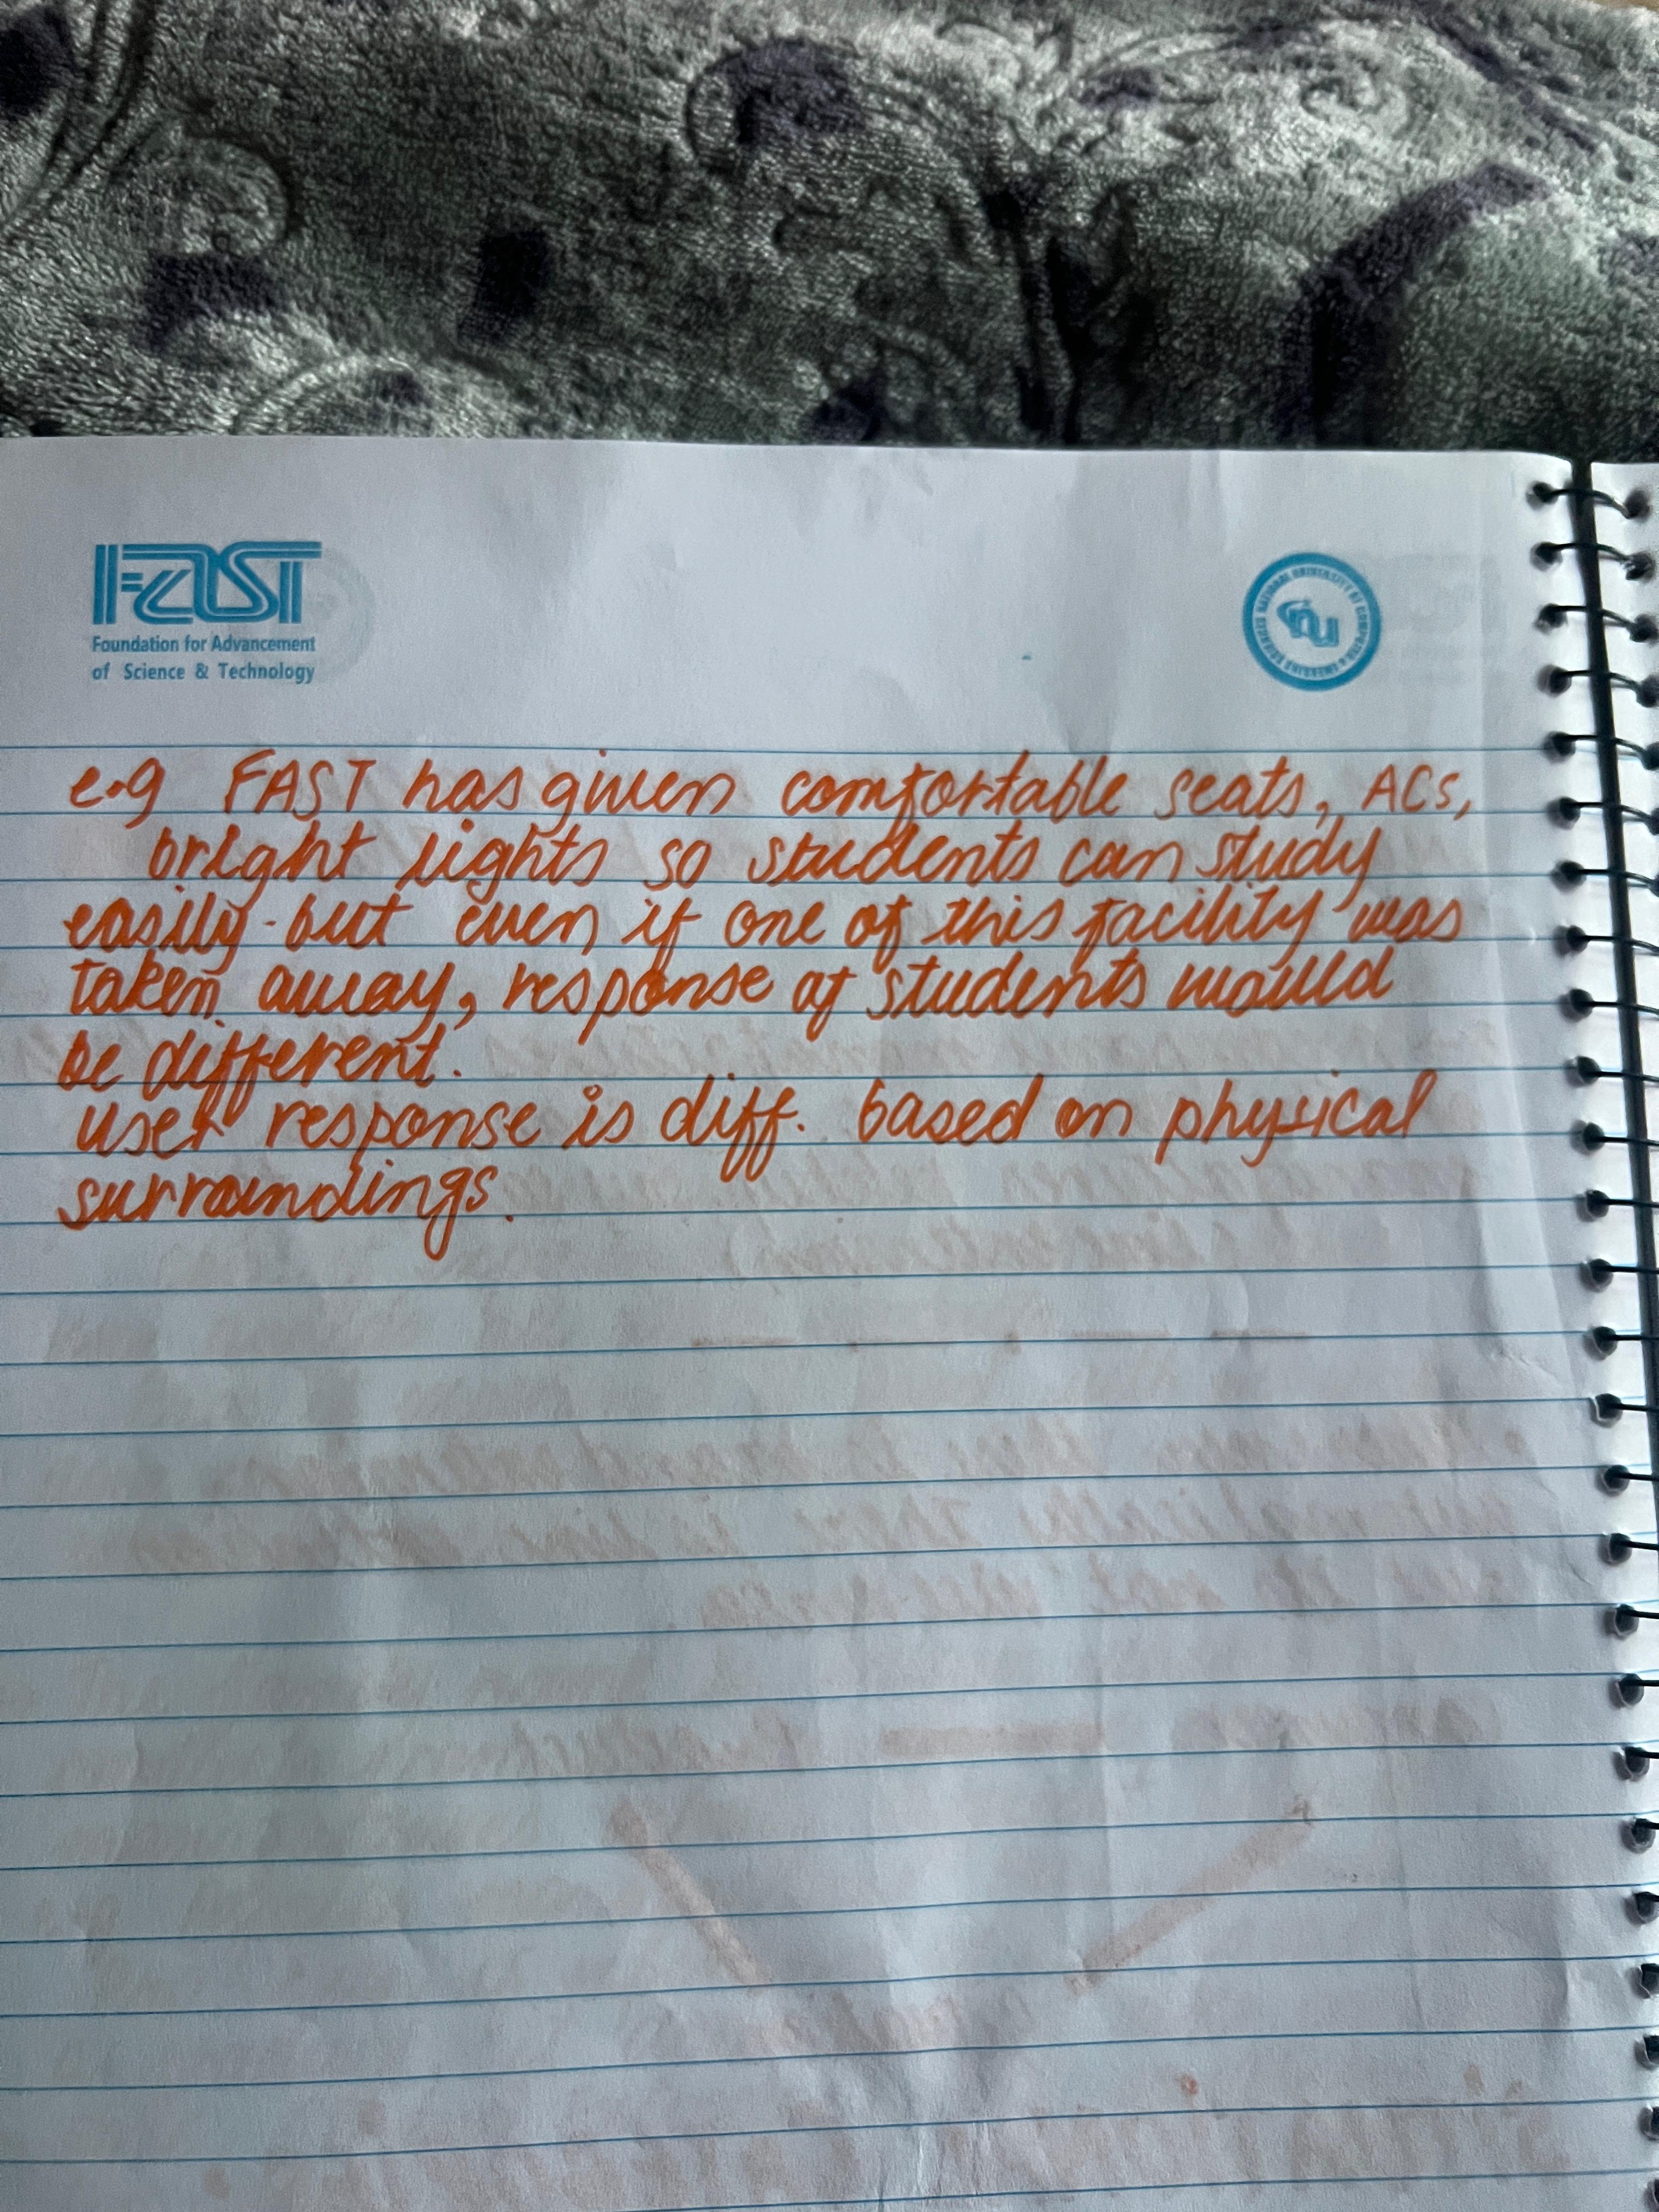 FAST
Foundation for Advancement
of Science & Technology
NATIONAL UNIVERSITY OF COMPUTER & EMERGING SCIENCES
nu
e.g FAST has given comfortable seats, ACs,
bright lights so students can study
easily. but even if one of this facility was
taken away, response of students would
be different.
User response is diff. based on physical
surroundings.